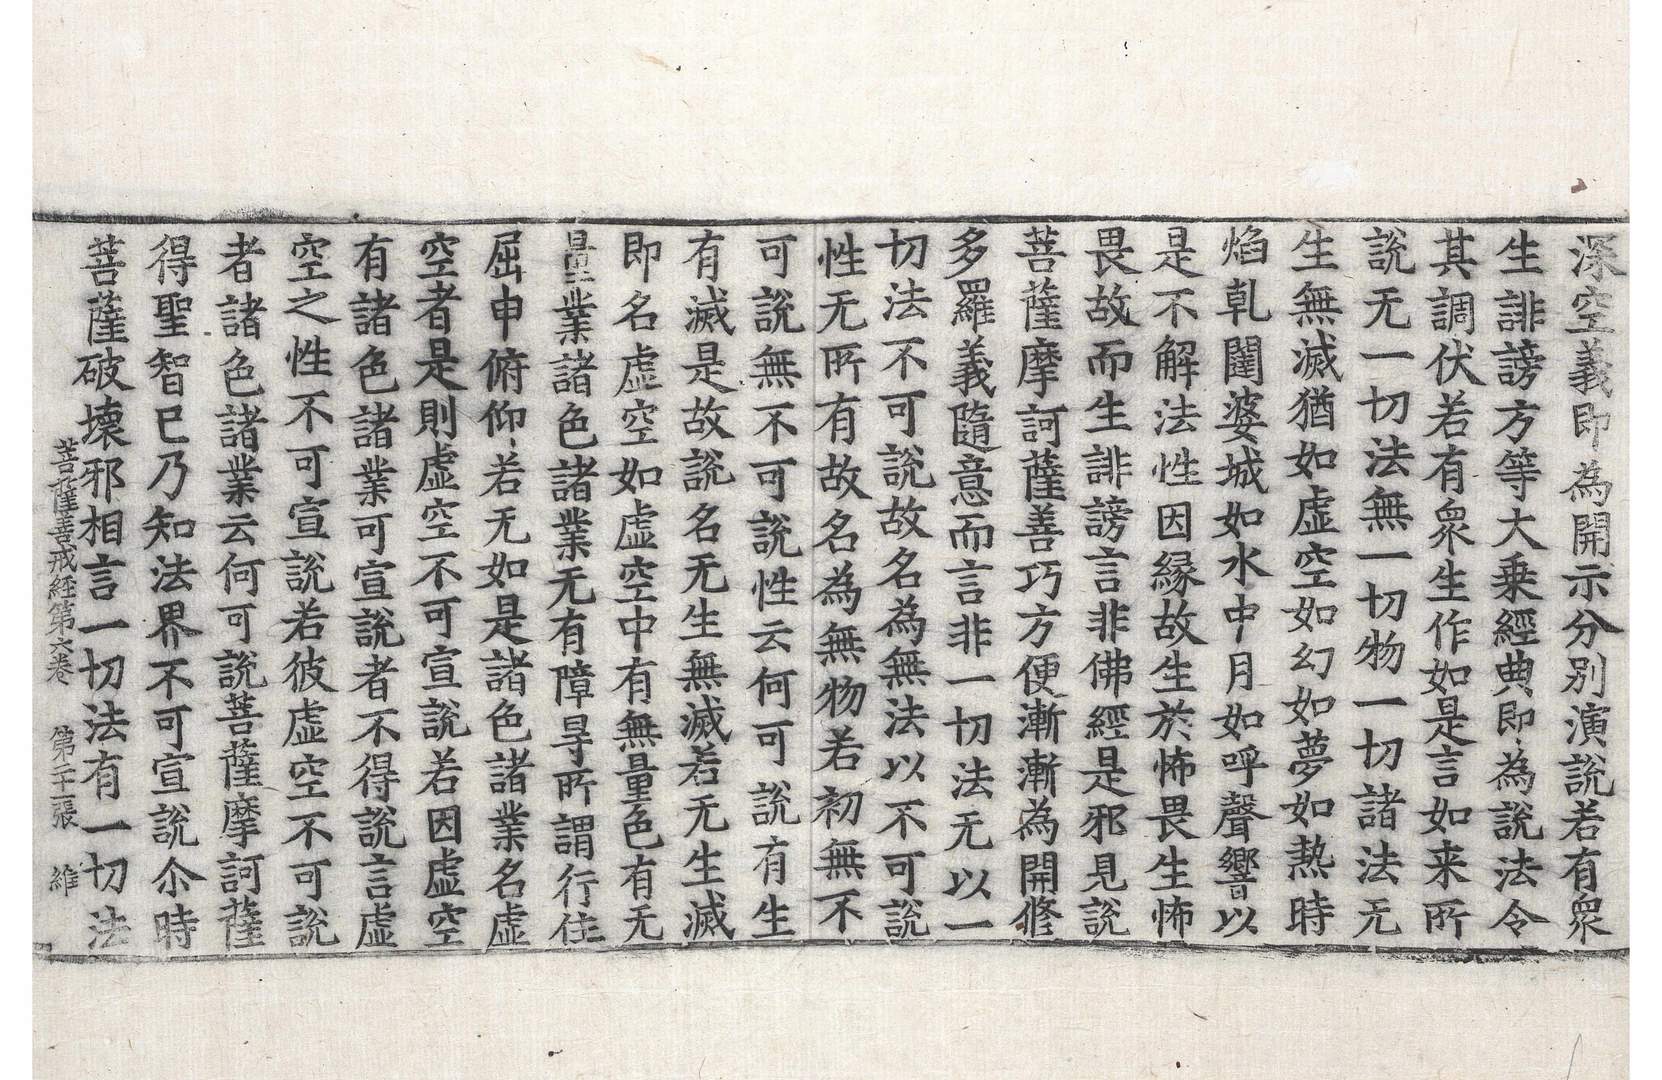 深空義即為開示分別演說若有衆
生誹謗方等大乗經典即為說法令
其調伏若有衆生作如是言如来所
說无一切法無一切物一切諸法无
生無滅猶如虛空如幻如夢如熱時
焰乹闥婆城如水中月如呼聲響以
是不解法性因縁故生於怖畏生怖
畏故而生誹謗言非佛經是邪見說
菩薩摩訶薩善巧方便漸漸為開脩
多羅義隨意而言非一切法无以一
切法不可說故名為無法以不可說
性无所有故名為無物若初無不
可說無不可說性云何可說有生
有滅是故說名无生無滅若无生滅
即名虛空如虛空中有無量色有无
量業諸色諸業无有障㝵所謂行住
屈申俯仰若无如是諸色諸業名虛
空者是則虛空不可宣說若因虛空
有諸色諸業可宣說者不得說言虛
空之性不可宣說若彼虛空不可說
者諸色諸業云何可說菩薩摩訶薩
得聖智已乃知法界不可宣說尒時
菩薩破壞邪相言一切法有一切法
菩薩善戒經第六卷 第二十張 維